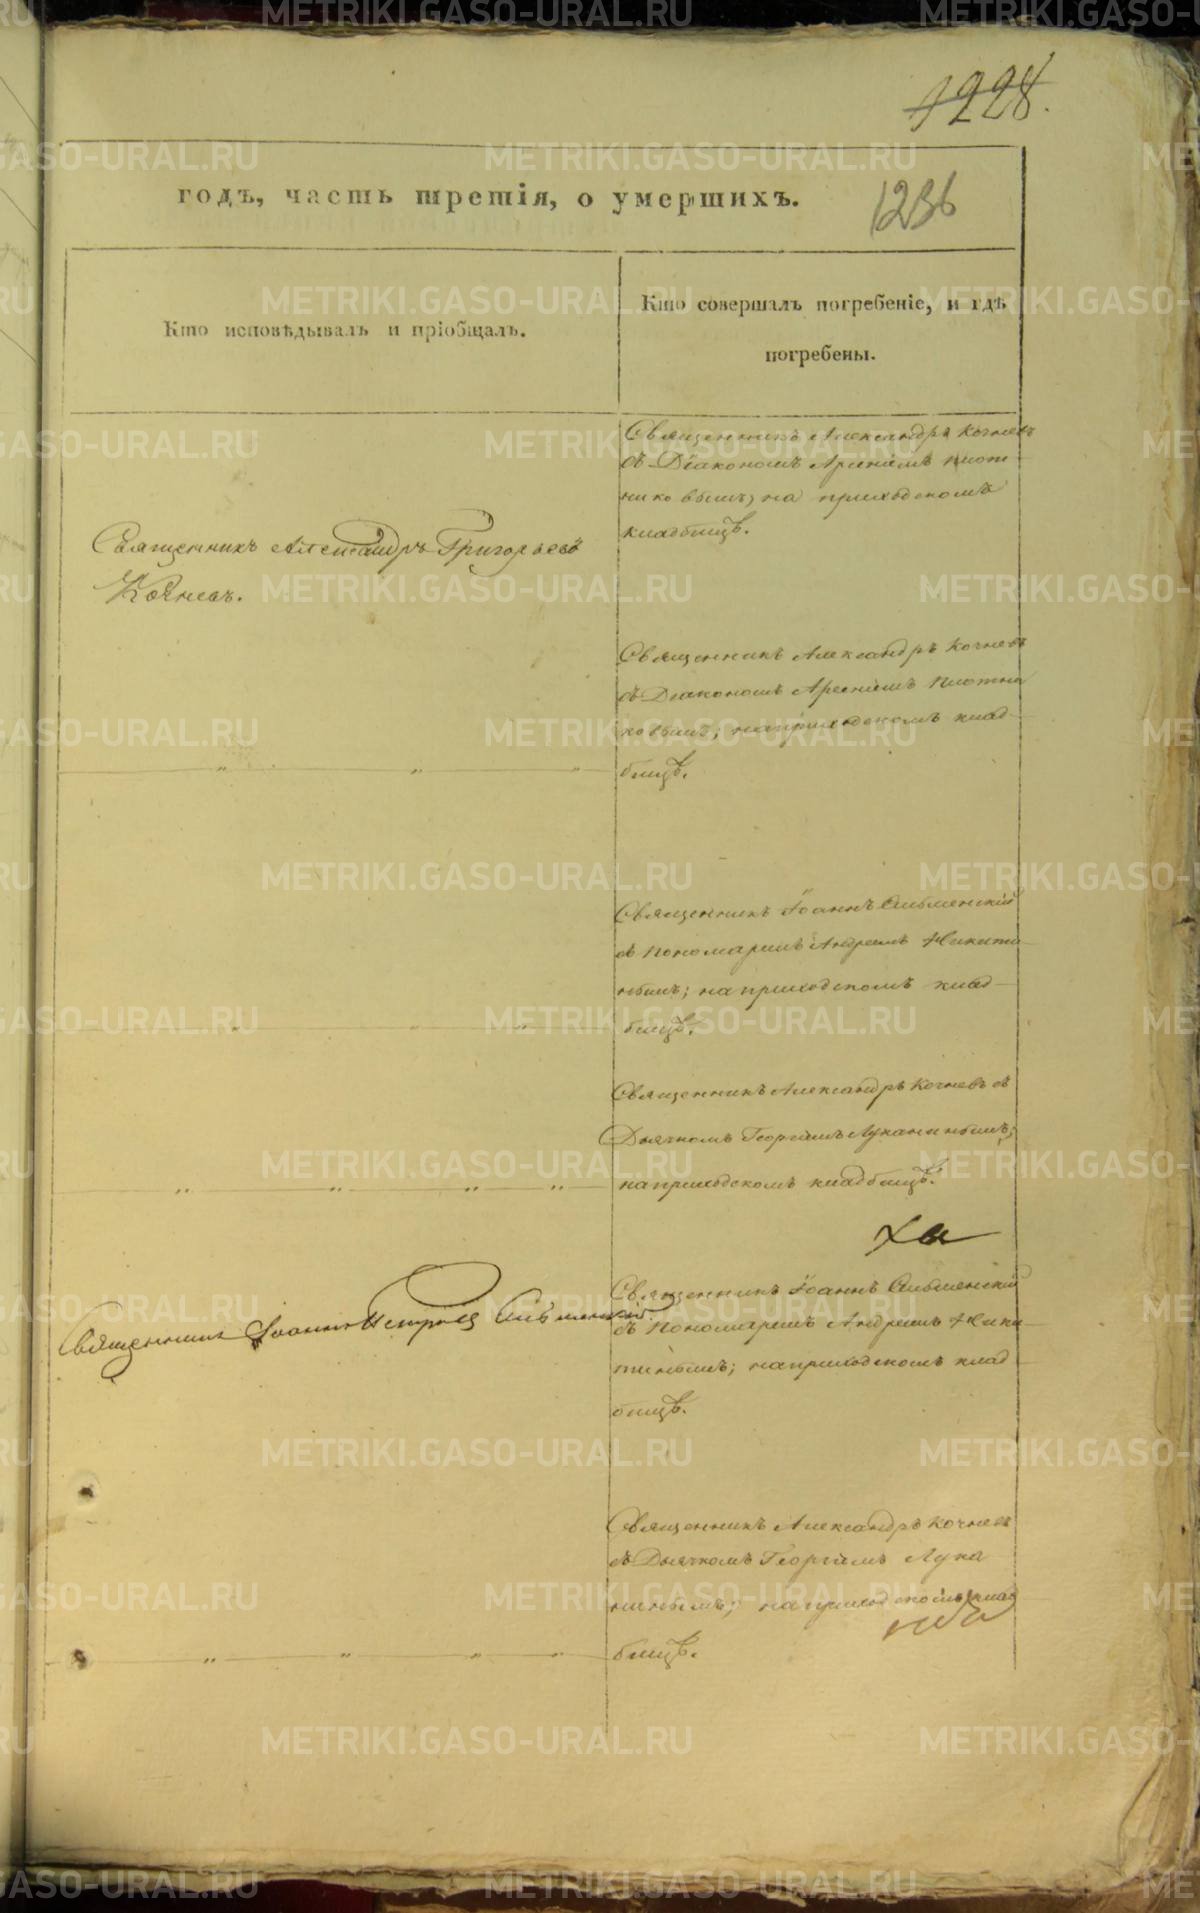 1228.
годъ, часть третія, о умершихъ.
1236
Кто исповѣдывалъ и пріобщалъ.
Кто совершалъ погребеніе, и гдѣ
погребены.
Священникъ Александръ Кочневъ
съ Діакономъ Арсеніемъ Плот-
никовымъ, на приходскомъ
кладбищѣ.
Священникъ Александръ Григорьевъ
Кочневъ.
Священникъ Александръ Кочневъ
съ Діакономъ Арсеніемъ Плотни
ковымъ; на приходскомъ клад-
" " "
бищѣ.
Священникъ Іоаннъ Сильменскій
съ Пономаремъ Андреемъ Никити-
нымъ; на приходскомъ клад-
" "
бищѣ.
Священникъ Александръ Кочневъ съ
Дьячкомъ Георгіемъ Луканинымъ;
на приходскомъ кладбищѣ.
" " " "
Священникъ Іоаннъ Сильменскій
Священникъ Іоаннъ Петровъ Сильменскій.
съ Пономаремъ Андреемъ Ники
тинымъ; на приходскомъ клад
бищѣ.
Священникъ Александръ Кочневъ
съ Дьячкомъ Георгіемъ Лука
нинымъ; на приходскомъ клад
" " " "
бищѣ.
METRIKI.GASO-URAL.RU